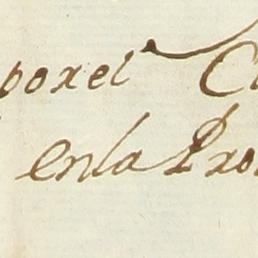 por el C
en la Pro